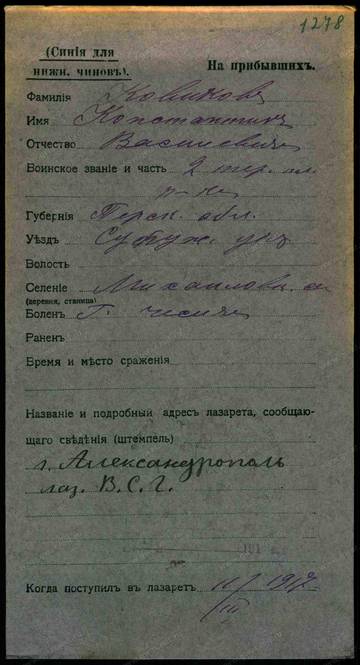 1278
(Синія для
нижн. чиновъ).
На прибывшихъ.
Фамилія Новиковъ
Имя Константинъ
Отчество Васильевичъ
Воинское званіе и часть 2
Губернія Терск. обл.
Уѣздъ
Волость
Селеніе Михайловск.
(деревня, станица)
Боленъ
Раненъ
Время и мѣсто сраженія
Названіе и подробный адресъ лазарета, сообщаю-
щаго свѣдѣнія (штемпель)
г. Александрополь
лаз. В.С.Г.
191
Когда поступилъ въ лазаретъ 1917
III